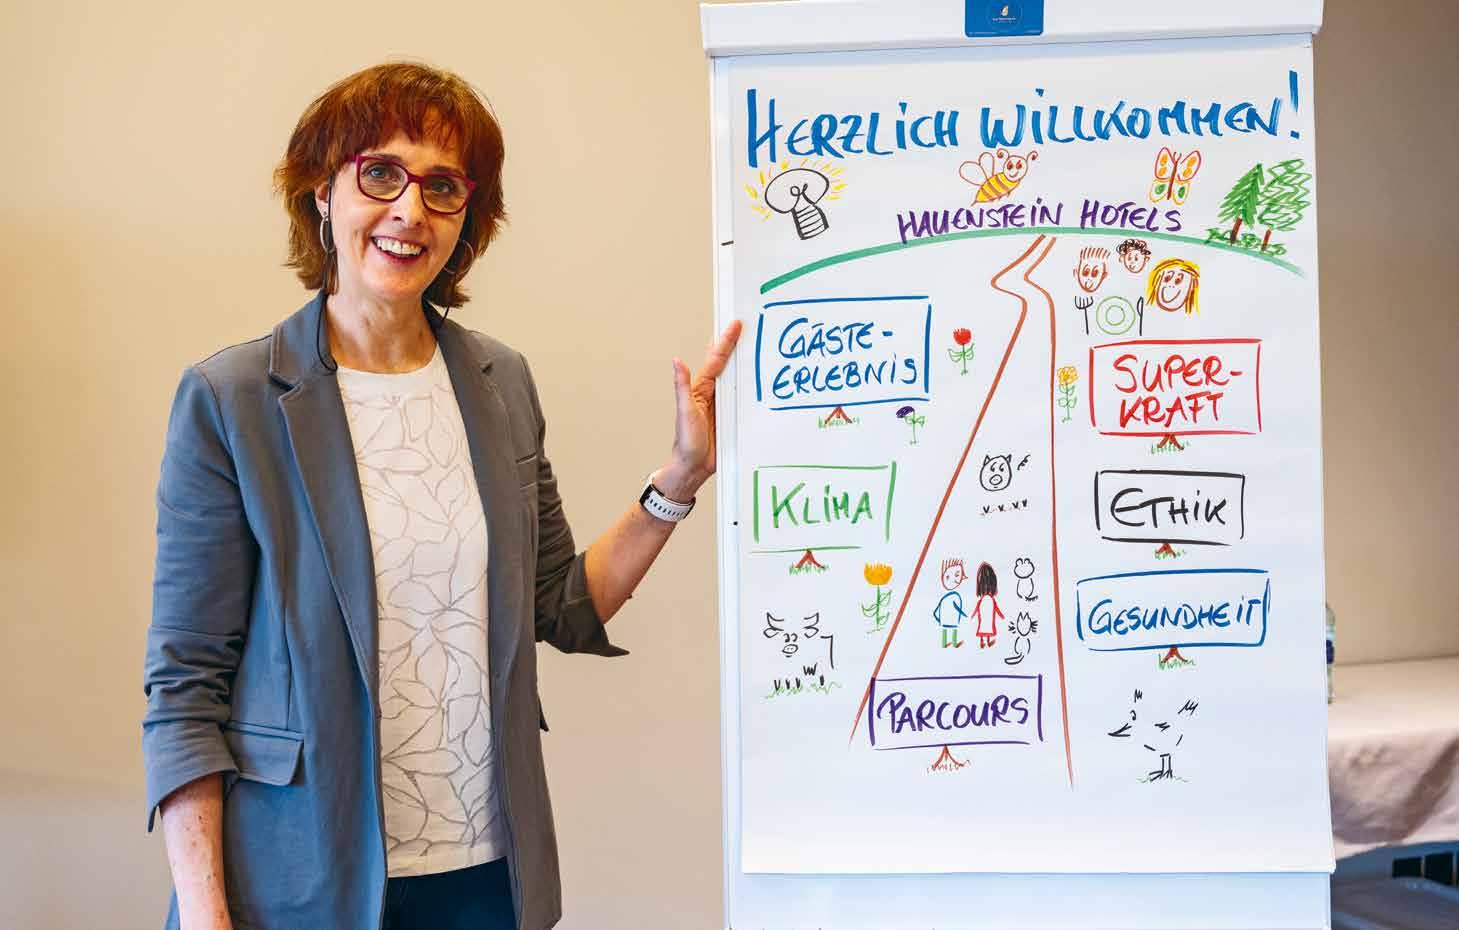 HERZLICH WILLKOMMEN!
HAUENSTEIN HOTELS
GÄSTE-
ERLEBNIS
SUPER-
KRAFT
KLIMA
ETHIK
GESUNDHEIT
PARCOURS